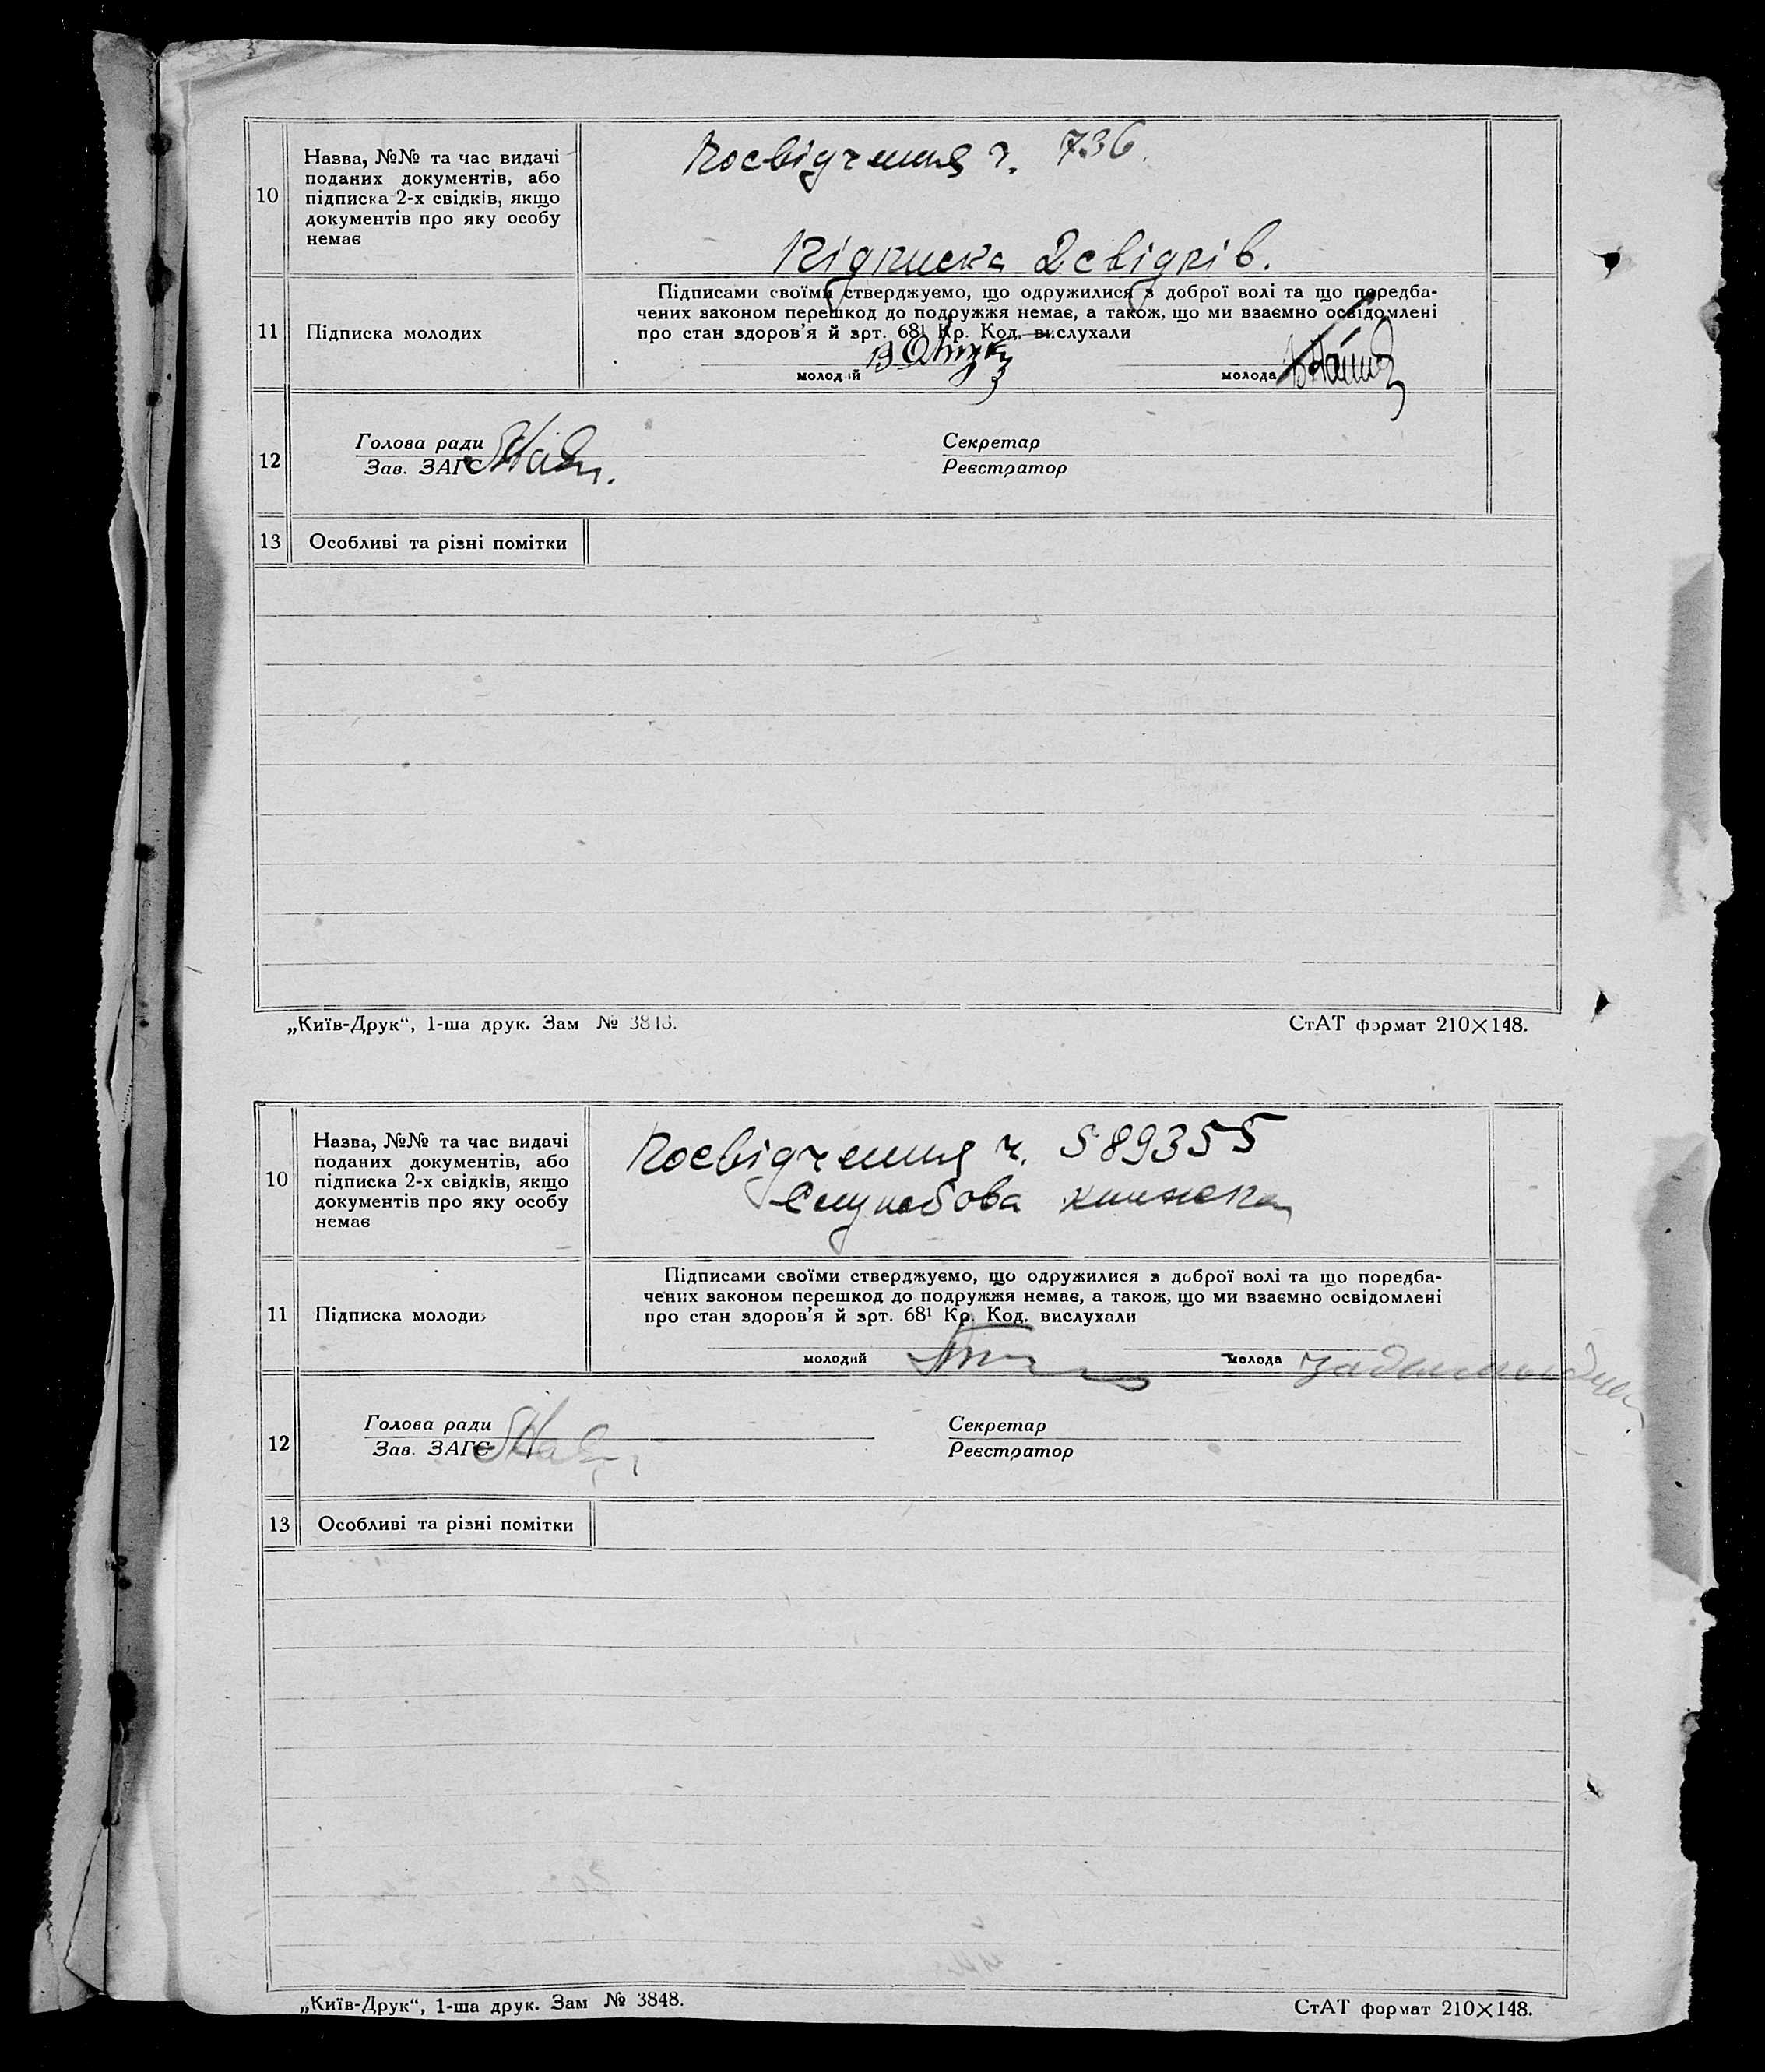 10
Назва, №№ та час видачі
поданих документів, або
підписка 2-х свідків, якщо
документів про яку особу
немає
Посвідчення ч. 736.
Підписка 2 свідків.
11
Підписка молодих
Підписами своїми стверджуємо, що одружилися з доброї волі та що поредба-
чених законом перешкод до подружжя немає, а також, що ми взаємно освідомлені
про стан здоров'я й зрт. 68¹ Кр. Код. вислухали
молодий
молода
12
Голова ради
Зав. ЗАГС
Секретар
Реєстратор
13
Особливі та різні помітки
„Київ-Друк“, 1-ша друк. Зам № 3848.
СтАТ формат 210×148.
10
Назва, №№ та час видачі
поданих документів, або
підписка 2-х свідків, якщо
документів про яку особу
немає
Посвідчення ч. 589355
Службова книжка
11
Підписка молодих
Підписами своїми стверджуємо, що одружилися з доброї волі та що поредба-
чених законом перешкод до подружжя немає, а також, що ми взаємно освідомлені
про стан здоров'я й зрт. 68¹ Кр. Код. вислухали
молодий
молода
12
Голова ради
Зав. ЗАГС
Секретар
Реєстратор
13
Особливі та різні помітки
„Київ-Друк“, 1-ша друк. Зам № 3848.
СтАТ формат 210×148.